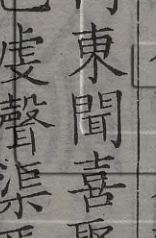 東聞喜
虔聲渠